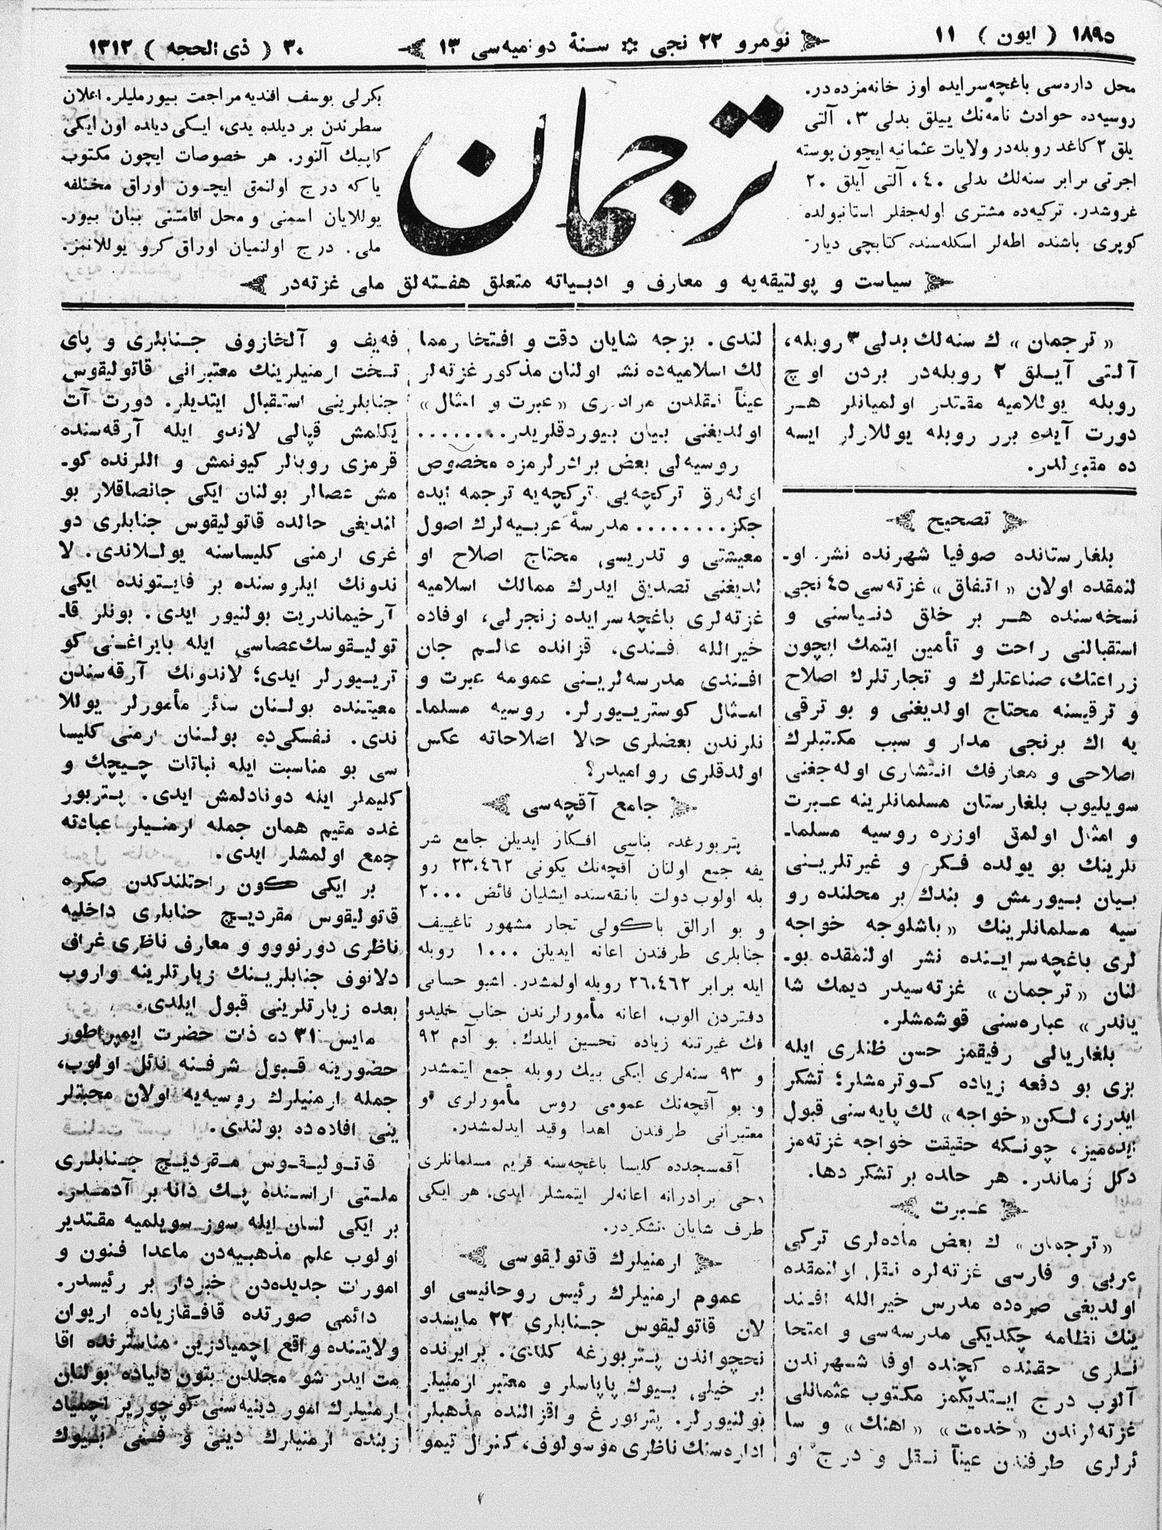 ١٨٩٥ ( ایون ) ١١
نومرو ٢٢ نجی ❊ سنهٔ دوامیه‌سی ١٣
٣٠ ( ذی الحجه ) ١٣١٢
محل داره‌سی باغچه‌سرایده اوز خانه‌مزده‌در.
روسیه‌ده حوادث نامه‌نك ییللق بدلی ٣، آلتی
یلق ٢ کاغد روبله‌در ولایات عثمانیه ایچون پوسته
اجرتی برابر سنه‌لك بدلی ٤٠، آلتی آیلق ٢٠
غروشدر. ترکیه‌ده مشتری اوله‌جقلر استانبولده
کوپری باشنده اطه‌لر اسکله‌سنده کتابچی دیار-
ترجمان
بکرلی یوسف افندیه مراجعت بیورملیلر. اعلان
سطرندن بر دیلده یدی، ایکی دیلده اون ایکی
کاپیك آلنور. هر خصوصات ایچون مکتوب
یاکه درج اولنمق ایچون اوراق مختلفه
یوللایان اسمنی و محل اقامتنی بیان بیور-
ملی. درج اولنمیان اوراق کرو یوللانمز.
سیاست و پولتیقه‌یه و معارف و ادبیاته متعلق هفته‌لق ملی غزته‌در
«ترجمان» ك سنه‌لك بدلی ٣ روبله،
آلتی آیلق ٢ روبله‌در بردن اوچ
روبله یوللامیه مقتدر اولمیانلر هر
دورت آیده برر روبله یوللارلر ایسه
ده مقبولدر.
تصحیح
بلغارستانده صوفیا شهرنده نشر او-
لنمقده اولان «اتفاق» غزته‌سی ٤٥ نجی
نسخه‌سنده هر بر خلق دنیاسنی و
استقبالنی راحت و تأمین ایتمك ایچون
زراعتك، صناعتلرك و تجارتلرك اصلاح
و ترقیسنه محتاج اولدیغنی و بو ترقی
یه اك برنجی مدار و سبب مکتبلرك
اصلاحی و معارفك انتشاری اوله‌جغنی
سویلیوب بلغارستان مسلمانلرینه عبرت
و امثال اولمق اوزره روسیه مسلما-
نلرینك بو یولده فکر و غیرتلرینی
بیان بیورمش و بندك بر محلنده رو
سیه مسلمانلرینك «باشلوجه خواجه
لری باغچه‌سراینده نشر اولنمقده بو-
لنان «ترجمان» غزته‌سیدر دیمك شا
یاندر» عباره‌سنی قوشمشلر.
بلغاریالی رفیقمز حسن ظنلری ایله
بزی بو دفعه زیاده کوترمشلر؛ تشکر
ایدرز، لکن «خواجه» لك پایه‌سنی قبول
ایده‌میز، چونکه حقیقت خواجه غزته‌مز
دکل زماندر. هر حالده بر تشکر دها.
عبرت
«ترجمان» ك بعض ماده‌لری ترکی
عربی و فارسی غزته‌لره نقل اولنمقده
اولدیغی صره‌ده مدرس خیرالله افند
ینك نظامه چکدیکی مدرسه‌سی و امتحا
نلری حقنده کچنده اوفا شهرندن
آلوب درج ایتدیکمز مکتوب عثمانلی
غزته‌لرندن «خدمت» «اهنك» و سا
ئرلری طرفندن عیناً نقل و درج او
لندی. بزجه شایان دقت و افتخار مما
لك اسلامیه‌ده نشر اولنان مذکور غزته‌لر
عیناً نقلدن مرادلری «عبرت و امثال»
اولدیغنی بیان بیوردقلریدر........
روسیه‌لی بعض برادرلرمزه مخصوص
اوله‌رق ترکچه‌یی ترکچه‌یه ترجمه ایده
جکز........ مدرسهٔ عربیه‌لرك اصول
معیشتی و تدریسی محتاج اصلاح او
لدیغنی تصدیق ایدرك ممالك اسلامیه
غزته‌لری باغچه‌سرایده زنجرلی، اوفاده
خیرالله افندی، قزانده عالم جان
افندی مدرسه‌لرینی عمومه عبرت و
امثال کوستریورلر. روسیه مسلما-
نلرندن بعضلری حالا اصلاحاته عکس
اولدقلری روامیدر؟
جامع آقچه‌سی
پتربورغده بناسی افکار ایدیلن جامع شر
یفه جمع اولنان آقچه‌نك یکونی ٢٣،٤٦٢ رو
بله اولوب دولت بانقه‌سنده ایشلیان فائض ٢٠٠٠
و بو ارالق باکولی تجار مشهور تاغییف
جنابلری طرفندن اعانه ایدیلن ١٠٠٠ روبله
ایله برابر ٢٦،٤٦٢ روبله اولمشدر. اشبو حسابی
دفتردن الوب، اعانه مأمورلرندن جناب خلیدو
فك غیرتنه زیاده تحسین ایلدك. بو آدم ٩٢
و ٩٣ سنه‌لری ایکی بیك روبله جمع ایتمشدر
و بو آقچه‌نك عمومی روس مأمورلری و
معتبرانی طرفندن اهدا وقید ایدلمشدر.
آقمسجدده کلیسا باغچه‌سنه قریم مسلمانلری
دحی برادرانه اعانه‌لر ایتمشلر ایدی، هر ایکی
طرف شایان تشکردر.
ارمنیلرك قاتولیقوسی
عموم ارمنیلرك رئیس روحانیسی او
لان قاتولیقوس جنابلری ٢٢ مایسده
نحچواندن پتربورغه کلدی. برابرنده
بر خیلی بیوك پاپاسلر و معتبر ارمنیلر
بولنیورلر. پتربورغ واقزالنده مذهبلر
اداره‌سنك ناظری موسولوف، کنرال تیمو
فه‌یف و آلخازوف جنابلری و پای
تخت ارمنیلرینك معتبرانی قاتولیقوس
جنابلرینی استقبال ایتدیلر. دورت آت
یکلمش قپالی لاندو ایله آرقه‌سنده
قرمزی روبالر کیونمش و اللرنده کو-
مش عصالر بولنان ایکی جانصاقلار بو
اندیغی حالده قاتولیقوس جنابلری دو
غری ارمنی کلیساسنه یوللاندی. لا
ندونك ایلروسنده بر فایتونده ایکی
آرخیماندریت بولنیور ایدی. بونلر قا-
تولیقوسك‌عصاسی ایله بایراغنی کو
تریورلر ایدی؛ لاندونك آرقه‌سندن
معیتنده بولنان سائر مأمورلر یوللا
ندی. نفسکی‌ده بولنان ارمنی کلیسا
سی بو مناسبت ایله نباتات چیچك و
کلیملر ایله دونادلمش ایدی. پتربور
غده مقیم همان جمله ارمنیلر عبادته
جمع اولمشلر ایدی.
بر ایکی کون راحتلندکدن صکره
قاتولیقوس مقردیچ جنابلری داخلیه
ناظری دورنووو و معارف ناظری غراف
دلانوف جنابلرینك زیارتلرینه واروب
بعده زیارتلرینی قبول ایلدی.
مایس ٣١ ده ذات حضرت ایمپراطور
حضورینه قبول شرفنه نائل اولوب،
جمله ارمنیلرك روسیه‌یه اولان محبتلر
ینی افاده‌ده بولندی.
قاتولیقوس مقردیچ جنابلری
ملتی اراسنده پك دانا بر آدمدر.
بر ایکی لسان ایله سوز سویلمیه مقتدیر
اولوب علم مذهبیه‌دن ماعدا فنون و
امورات جدیده‌دن خبردار بر رئیسدر.
دائمی صورتده قافقازیاده اریوان
ولایتنده واقع اچمیادزین مناسترنده اقا
مت ایدر شو محلدن بتون دنیاده بولنان
ارمنیلرك امور دینیه‌سنی کوچوریر اچمیاد
زینده ارمنیلرك دینی و فنی بیوك